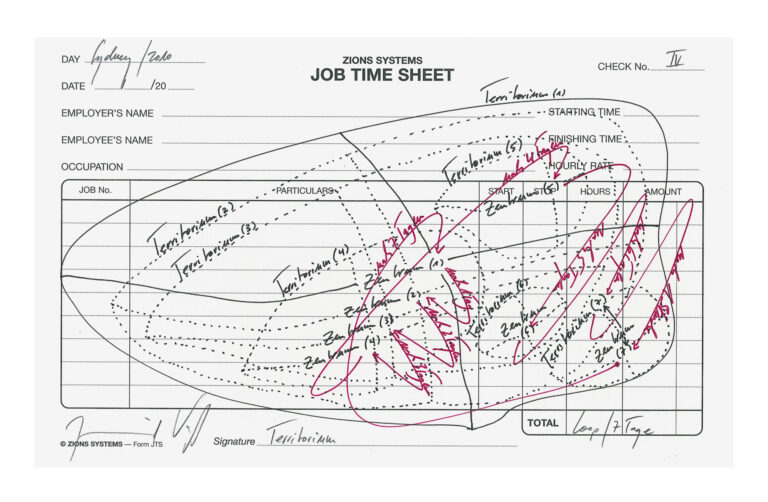 DAY Sydney / 2010
ZIONS SYSTEMS
JOB TIME SHEET
CHECK No. IV
DATE /20
EMPLOYER'S NAME
Territorium (1)
STARTING TIME
EMPLOYEE'S NAME
FINISHING TIME
OCCUPATION
Territorium (5)
nach 4 Tagen
HOURLY RATE
JOB No.
PARTICULARS
START
STOP
HOURS
AMOUNT
Zentraum (5)
Territorium (2)
Territorium (3)
nach 7 Tagen
Territorium (4)
Zentraum (1)
Territorium (6)
Zentraum (2)
Zentraum (3)
Zentraum (4)
Zentraum (6)
Territorium (7)
Zentraum (7)
TOTAL Loop / 7 Tage
© ZIONS SYSTEMS — Form JTS
Signature Territorium